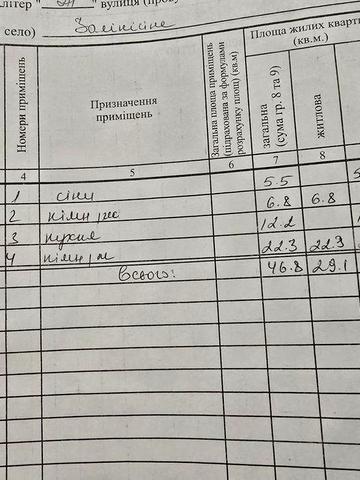 літер " " вулиця (пров
село) Залінійне
Номери приміщень
Призначення
приміщень
Загальна площа приміщень
(підрахована за формулами
розрахунку площі) (кв.м)
Площа жилих кварти
(кв.м.)
загальна
(сума гр. 8 та 9)
житлова
4 5 6 7 8
1 сіни 5.5
2 кімната 6.8 6.8
3 кухня 12.2
4 кімната 22.3 22.3
Всього: 46.8 29.1